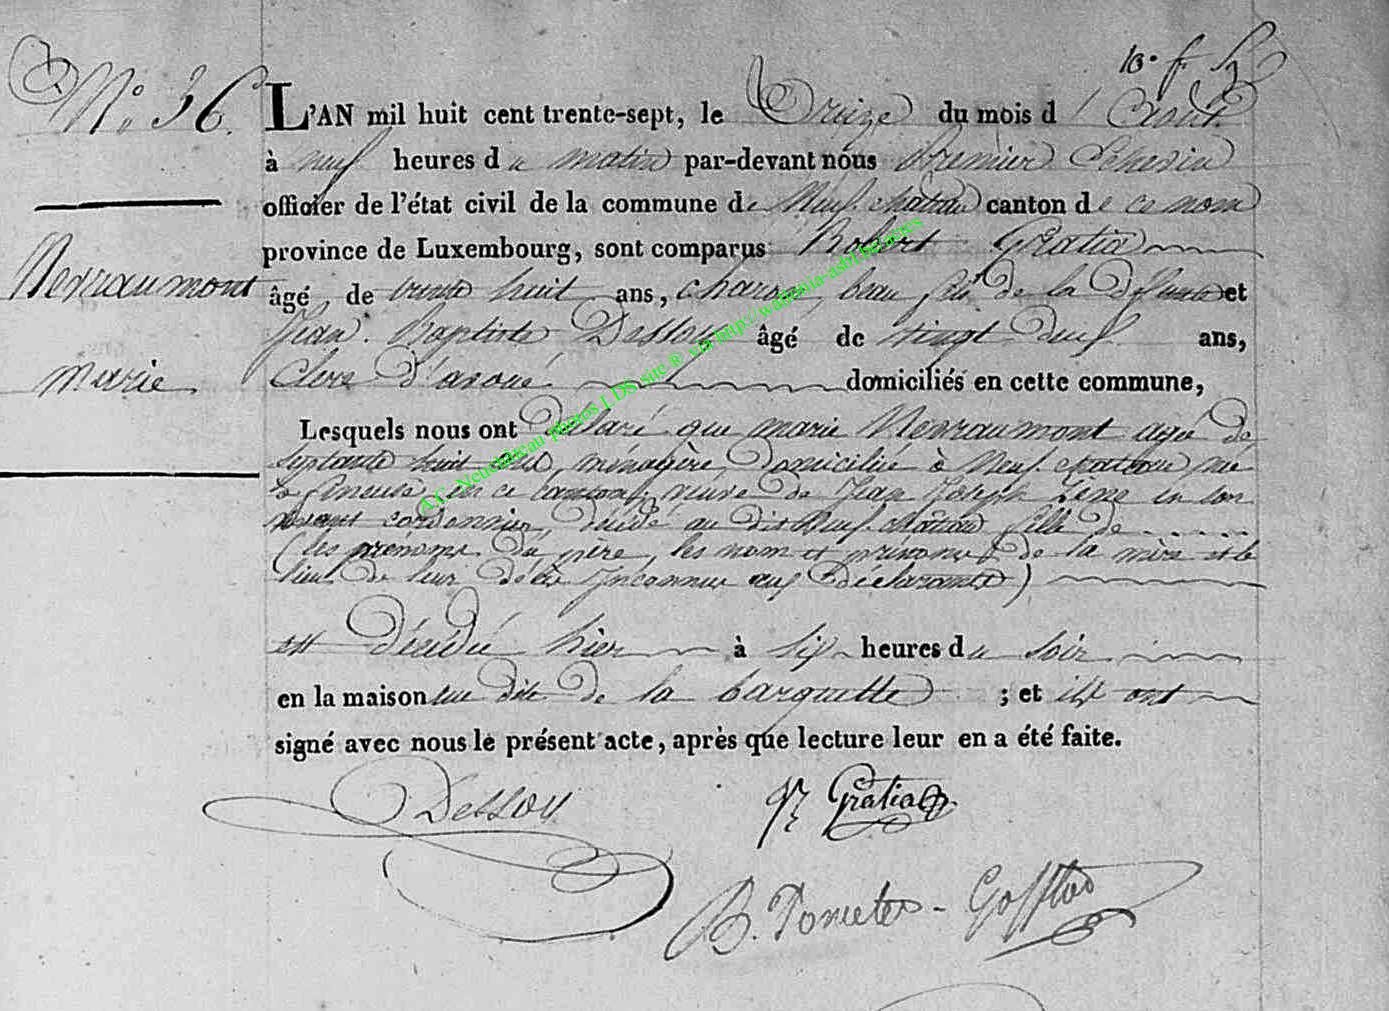 10. f
N.º 36.
L'AN mil huit cent trente-sept, le treize du mois d'Août
à neuf heures du matin par-devant nous Premier Echevin
officier de l'état civil de la commune de Neufchateau canton de ce nom
province de Luxembourg, sont comparus Robert Gratia
Nevraumont
âgé de trente huit ans, charron, beau fils de la défunte et
Jean Baptiste Dessoy âgé de vingt deux ans,
Marie
Clerc d'avoué domiciliés en cette commune,
Lesquels nous ont déclaré que marie Nevraumont agée de
septante huit ans, ménagère, domiciliée à Neufchateau née
en ce canton, veuve de Jean Joseph en son
vivant cordonnier, décédé au dit Neufchâteau fille de ......
(les prénoms du père, les nom et prénoms de la mère et le
lieu de leur décès inconnus aux déclarants)
est décédée hier à six heures du soir
en la maison rue dite de la barquette ; et ils ont
signé avec nous le présent acte, après que lecture leur en a été faite.
Dessoy
R Gratia
A.C. Neuchâteau photos LDS site ® via http://wallonia-asbl.be/actes